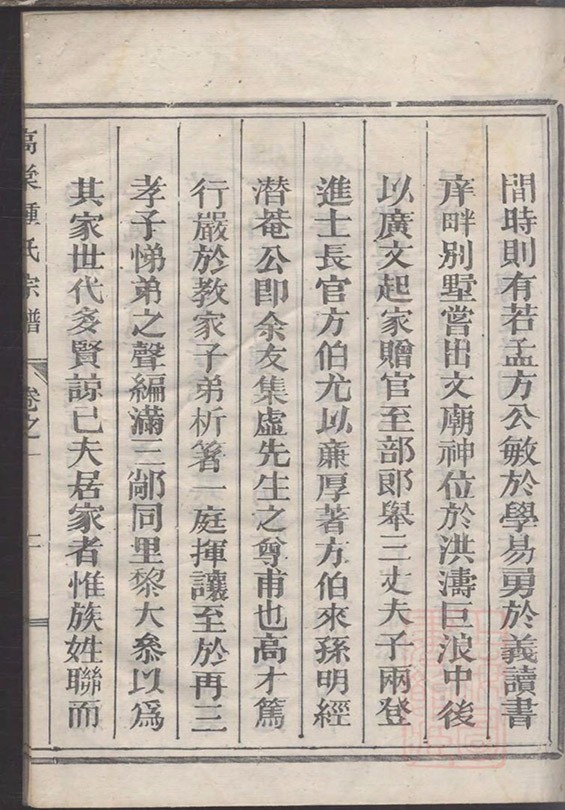 間時則有若孟方公敏於學易勇於義讀書
庠畔別墅嘗出文廟神位於洪濤巨浪中後
以廣文起家贈官至部郎舉三丈夫子兩登
進士長官方伯尤以廉厚著方伯來孫明經
潛菴公即余友集虛先生之尊甫也高才篤
行嚴於教家子弟析箸一庭揮讓至於再三
孝子悌弟之聲編滿三鄗同里黎大叅以爲
其家世代多賢諒已夫居家者惟族姓聯而
高樂鍾氏宗譜 卷之一 二